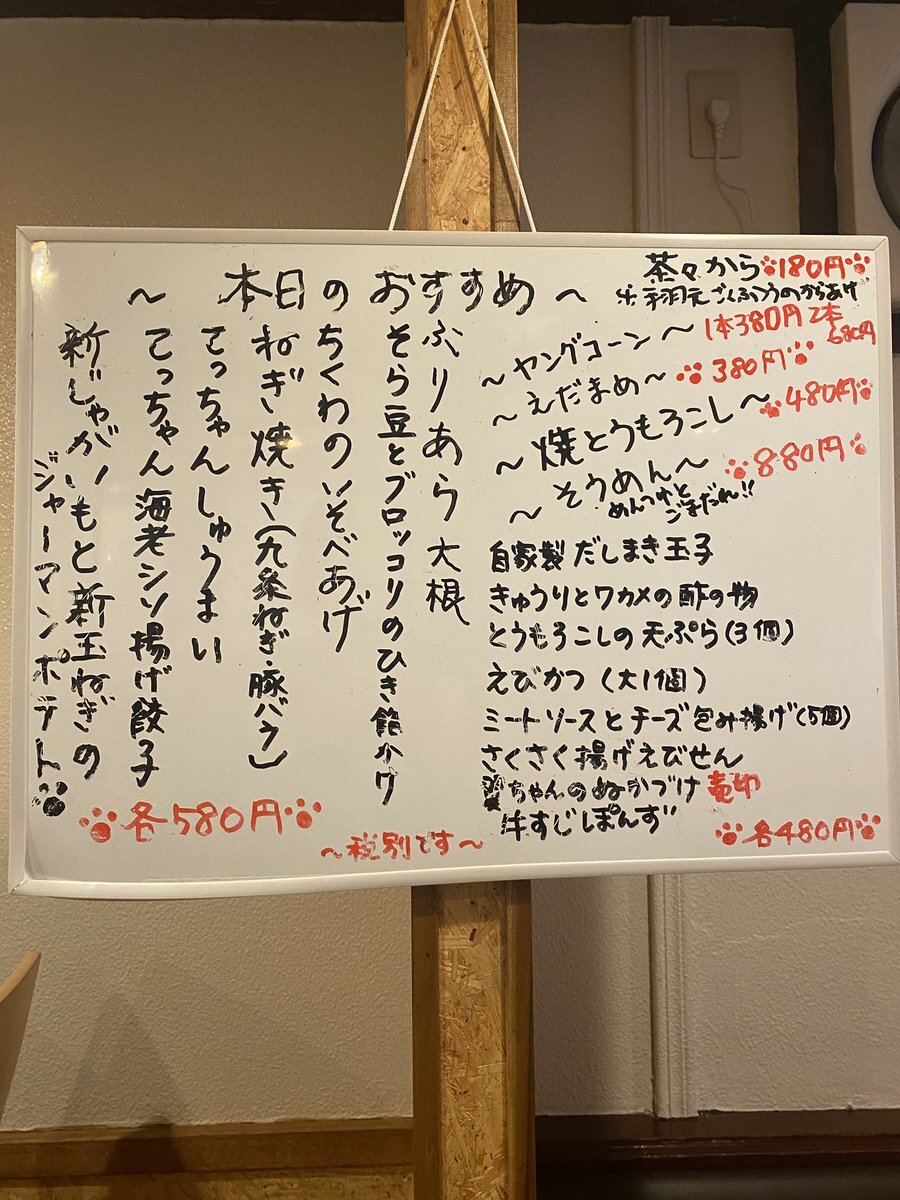 ~ 本日のおすすめ ~
茶々から 180円
※手羽元ごくふつうのからあげ
~ヤングコーン~ 1本380円 2本680円
~えだまめ~ 380円
~焼とうもろこし~ 480円
~そうめん~ 880円
めんつゆと
ごまだれ!!
自家製だしまき玉子
きゅうりとワカメの酢の物
とうもろこしの天ぷら(3個)
えびかつ(大1個)
ミートソースとチーズ包み揚げ(5個)
さくさく揚げえびせん
ちゃんのぬかづけ
牛すじぽんず
各480円
ぶりあら大根
そら豆とブロッコリのひき餡かけ
ちくわのいそべあげ
ねぎ焼き(九条ねぎ・豚バラ)
てっちゃんしゅうまい
てっちゃん海老シソ揚げ餃子
新じゃがいもと新玉ねぎの
ジャーマンポテト
各580円
~税別です~